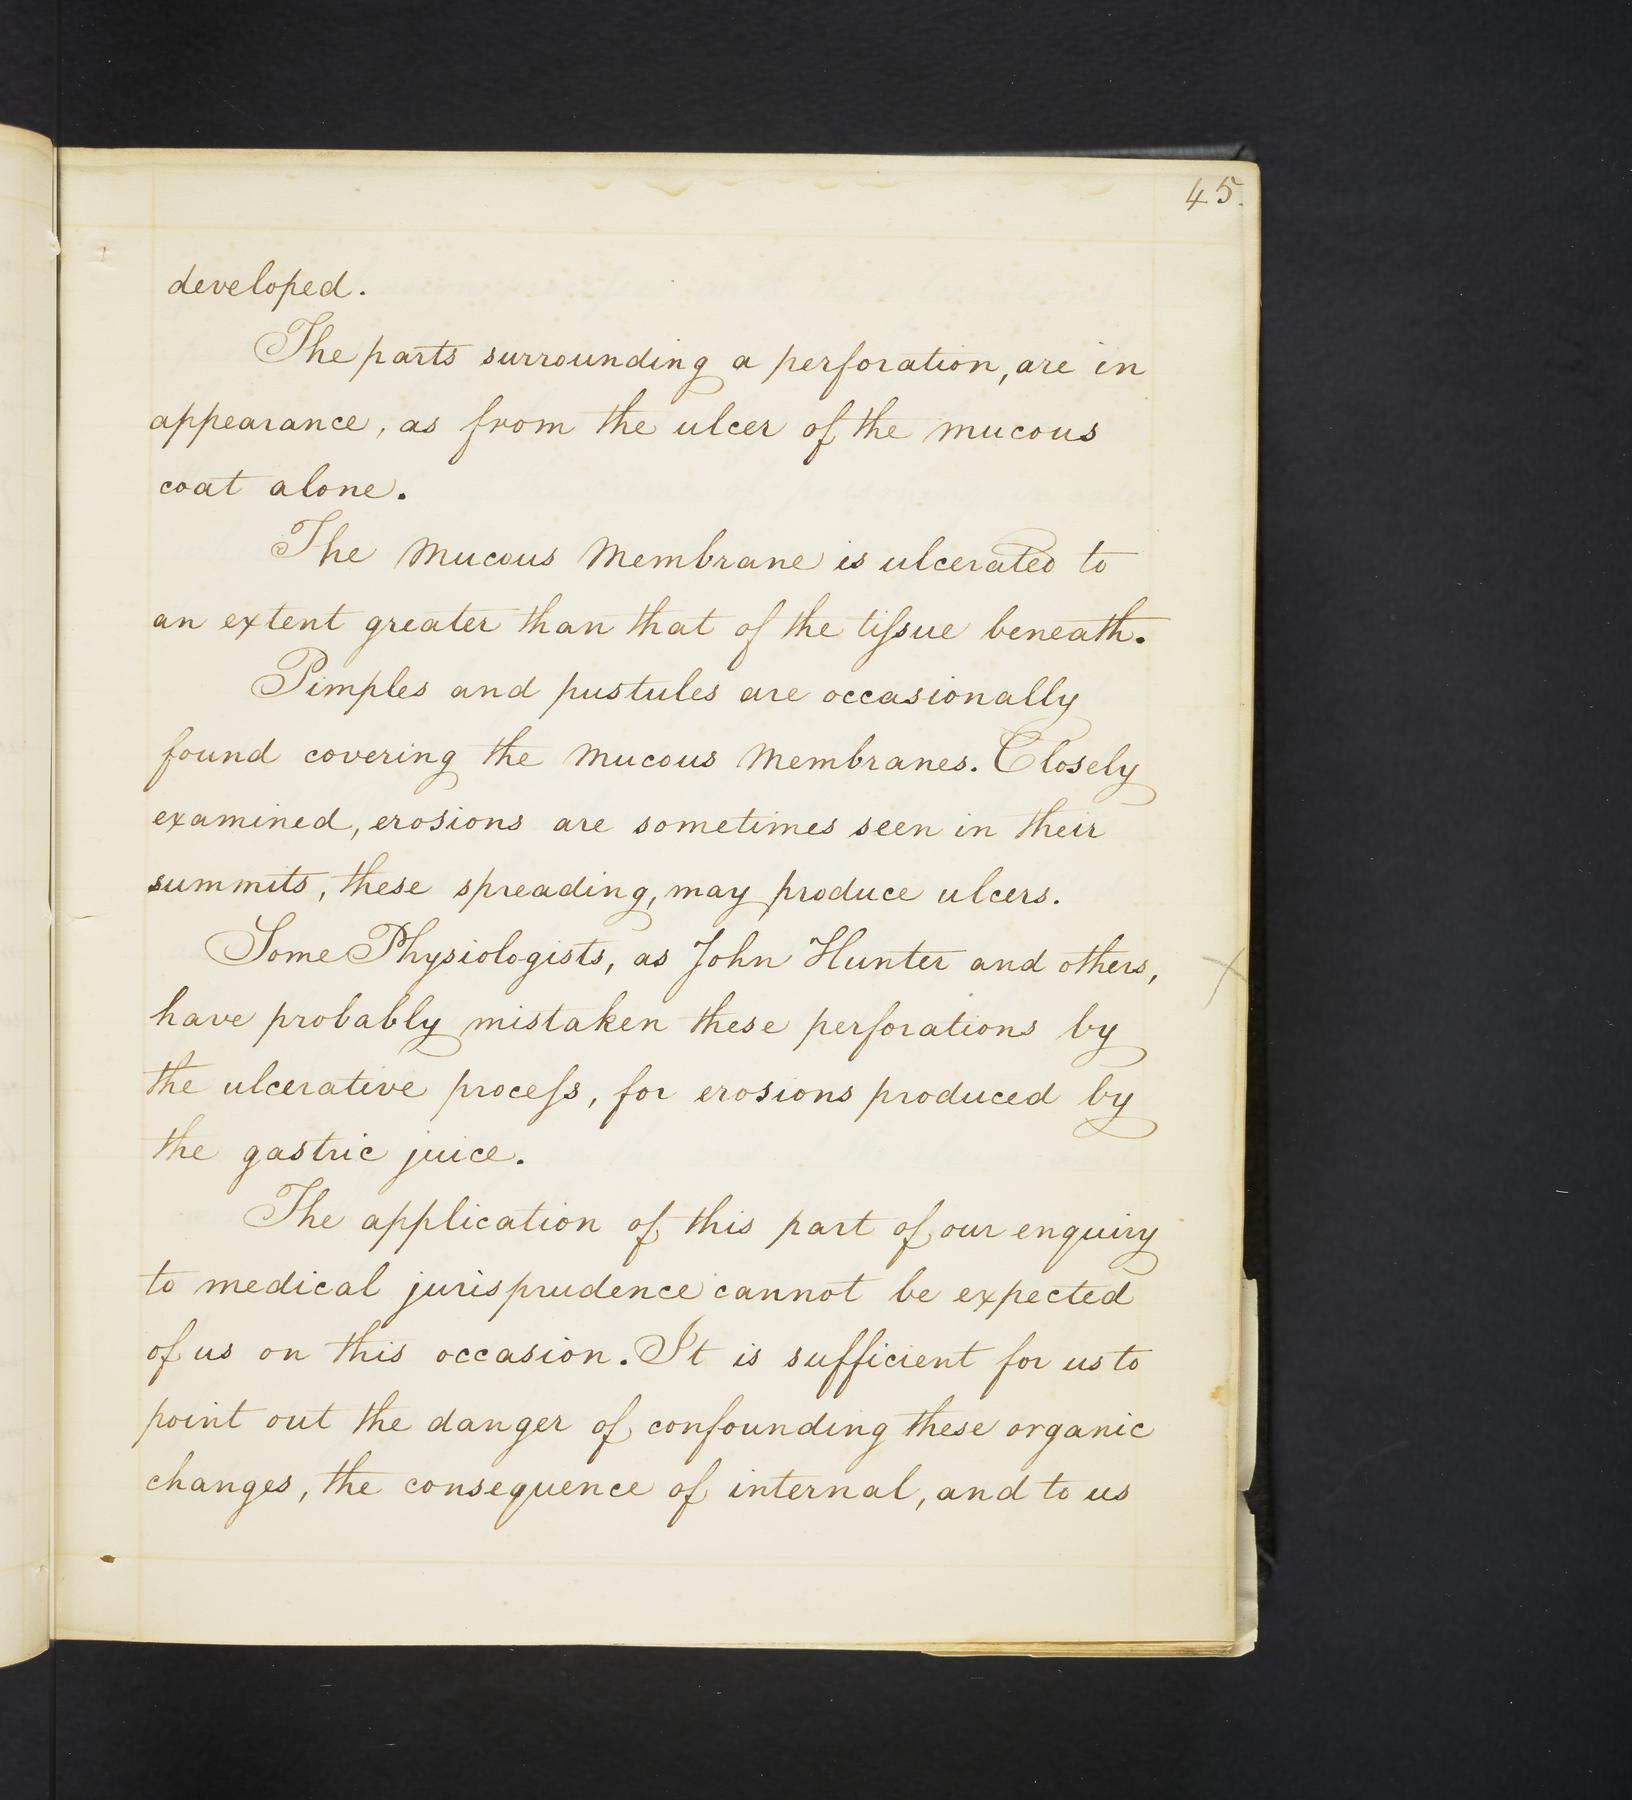 45.
developed.
The parts surrounding a perforation, are in
appearance, as from the ulcer of the mucous
coat alone.
The mucous membrane is ulcerated to
an extent greater than that of the tiſsue beneath.
Pimples and pustules are occasionally
found covering the mucous membranes. Closely
examined, erosions are sometimes seen in their
summits, these spreading, may produce ulcers.
Some Physiologists, as John Hunter and others,
have probably mistaken these perforations by
the ulcerative proceſs, for erosions produced by
the gastric juice.
The application of this part of our enquiry
to medical jurisprudence cannot be expected
of us on this occasion. It is sufficient for us to
point out the danger of confounding these organic
changes, the consequence of internal, and to us